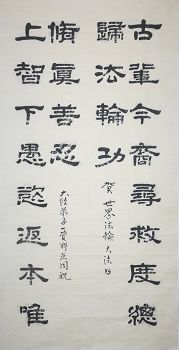 古輩今裔尋救度總
歸法輪功
上智下愚慾返本唯
脩眞善忍
賀 世界法輪大法日
大陸弟子